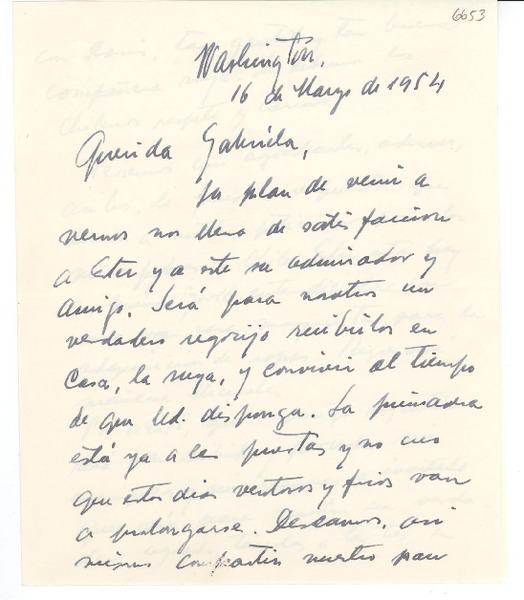 6653
Washington,
16 de Marzo de 1954
Querida Gabriela,
Su plan de venir a
vernos nos llena de satisfaccion
a Ester y a este su admirador y
amigo. Será para nosotros un
verdadero regocijo recibirlos en
casa, la suya, y convivir el tiempo
de que Ud. disponga. La primavera
está ya a las puertas y no creo
que estos dias ventosos y frios van
a prolongarse. Deseamos, asi
mismo compartir nuestro pan